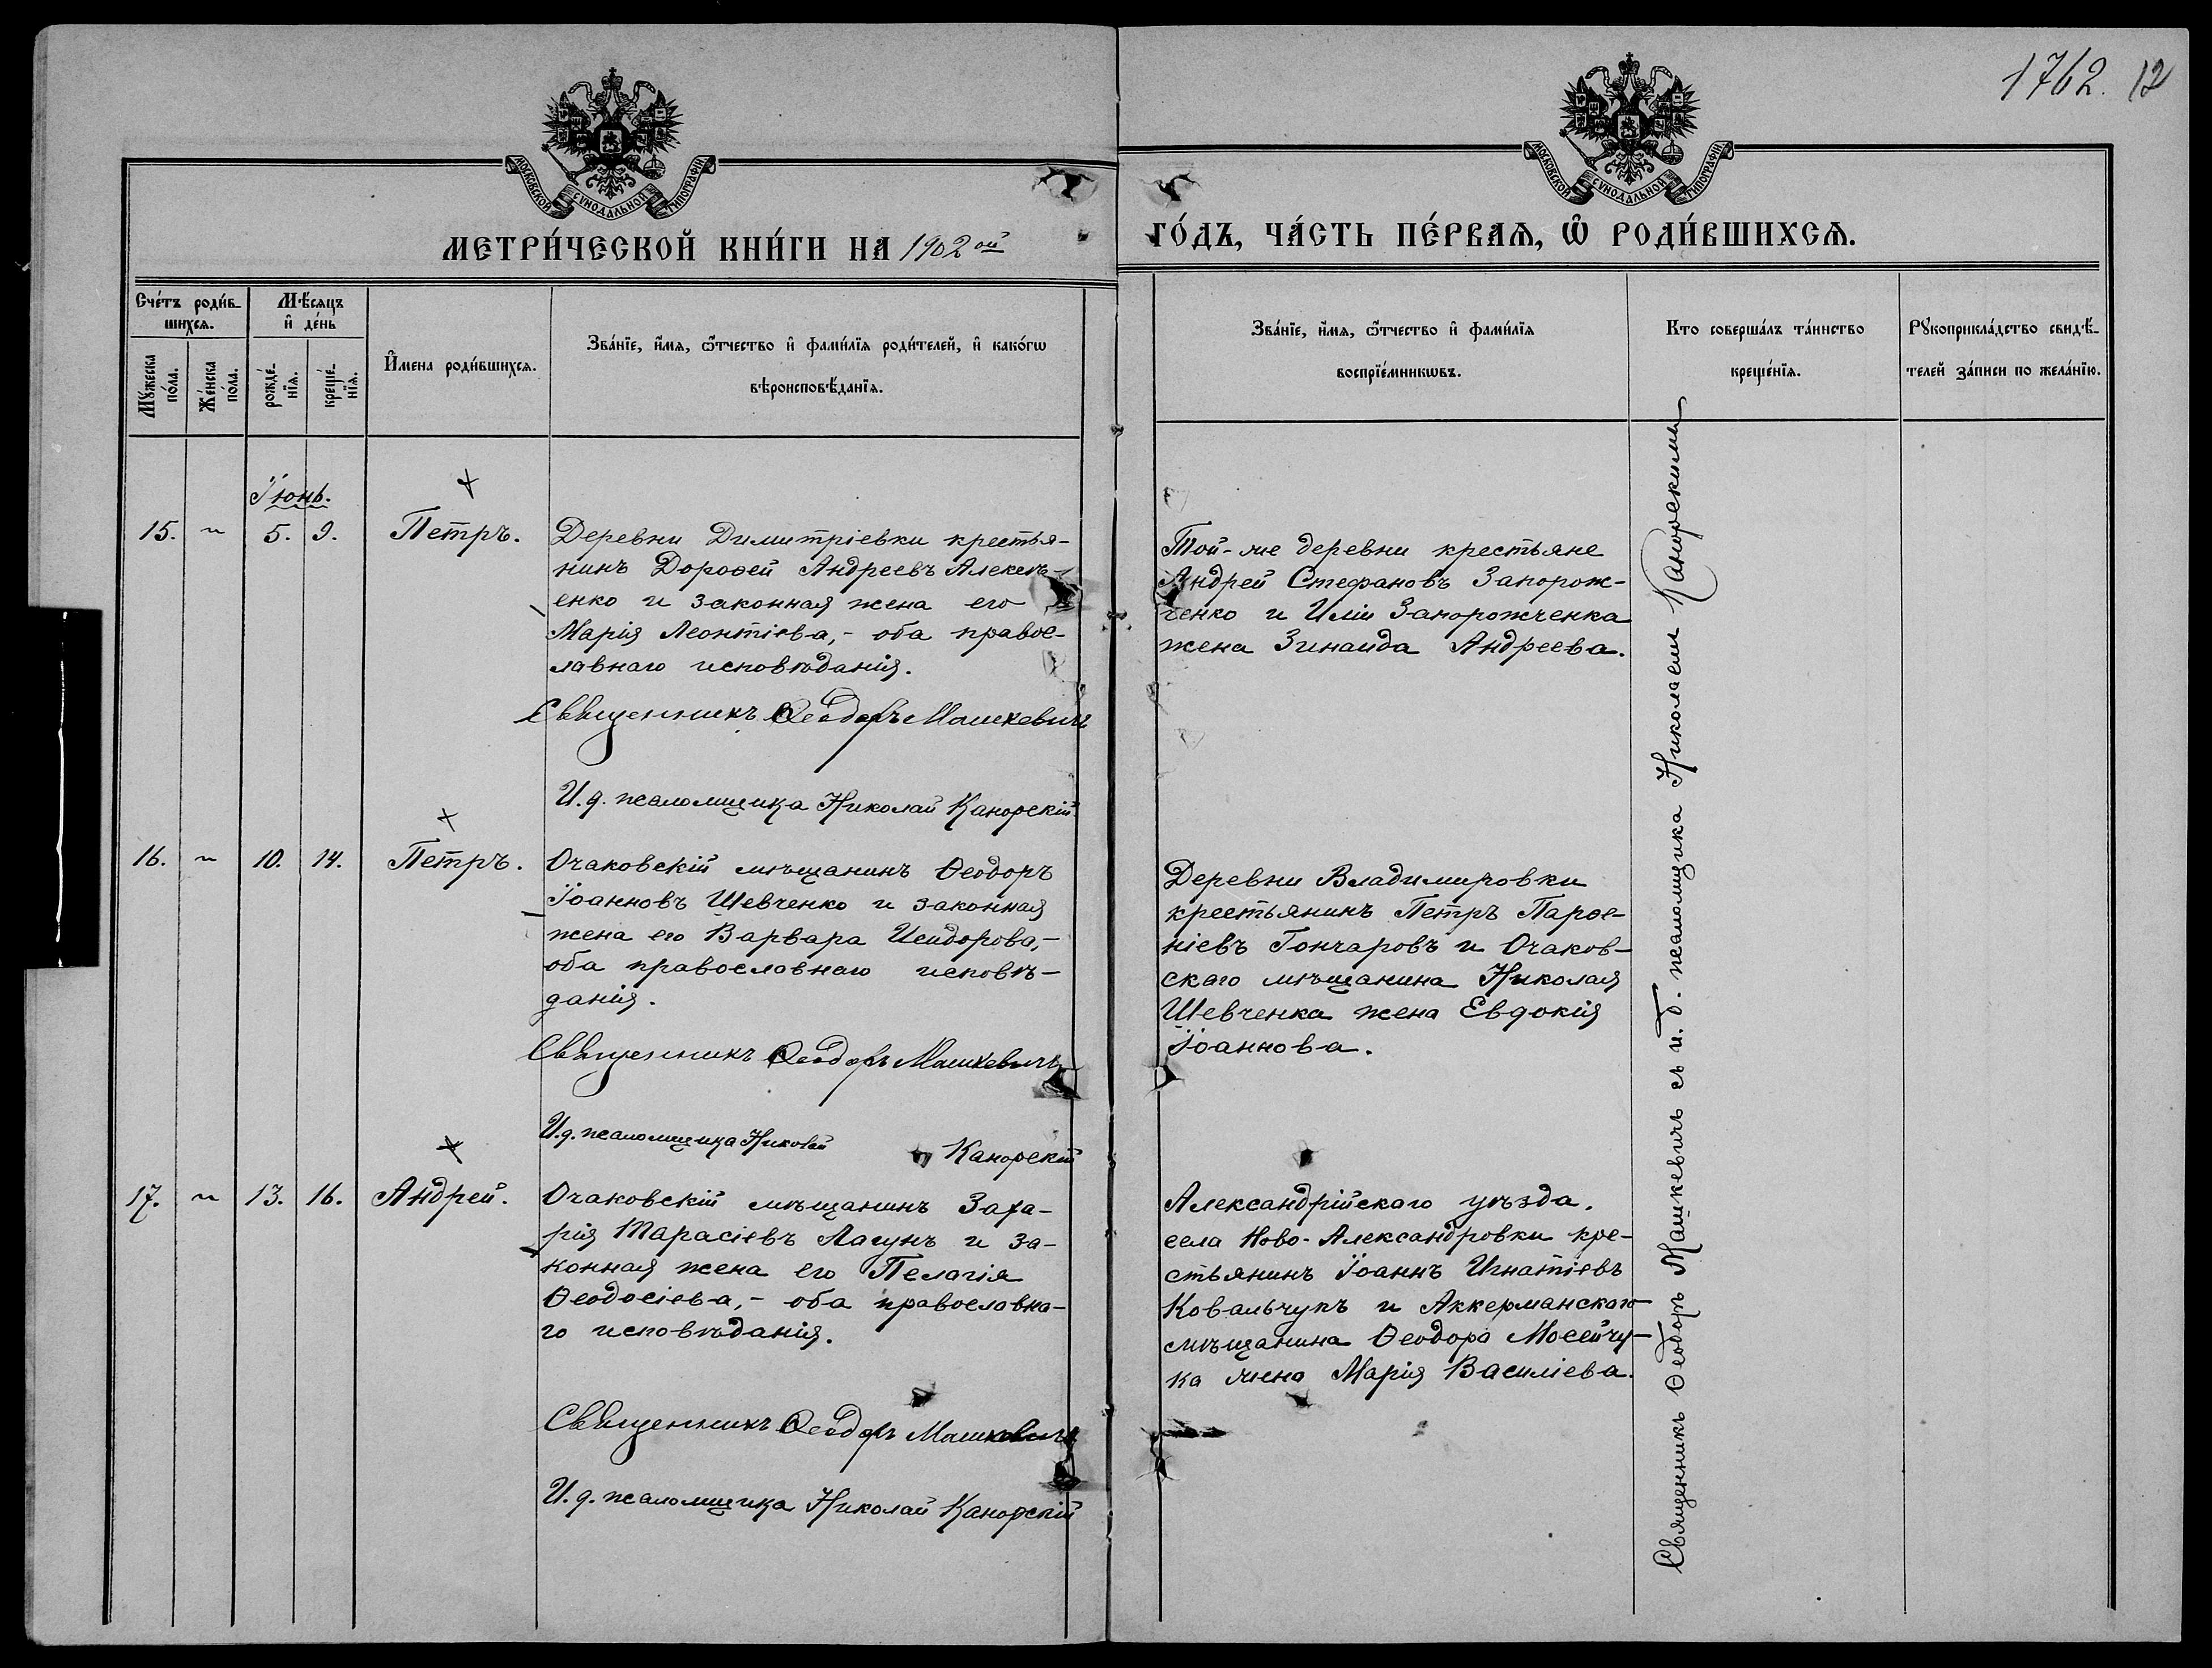 1762. 12
МОСКОВСКОЙ СѴНОДАЛЬНОЙ ТИПОГРАФІИ
МОСКОВСКОЙ СѴНОДАЛЬНОЙ ТИПОГРАФІИ
МЕТРИ́ЧЕСКОЙ КНИ́ГИ НА 1902 ой
ГО́ДЪ, ЧА́СТЬ ПЕ́РВАѦ, Ѡ҆ РОДИ́ВШИХСѦ.
Сче́тъ роди́в-
шихсѧ.
Мѣ́сѧцъ
и҆ де́нь
Мꙋ́жеска
по́ла.
Же́нска
по́ла.
рожде́-
нїѧ.
креще́-
нїѧ.
И҆мена роди́вшихсѧ.
Зва́нїе, и҆́мѧ, ѻ҆́тчество и҆ фами́лїѧ роди́телей, и҆ како́гѡ
вѣроисповѣ́данїѧ.
Зва́нїе, и҆́мѧ, ѻ҆́тчество и҆ фами́лїѧ
воспрїе́мникѡвъ.
Кто соверша́лъ та́инство
креще́нїѧ.
Рꙋкоприкла́дство свидѣ́-
телей за́писи по жела́нїю.
Іюнь.
15. " 5. 9. Петръ.
Деревни Димитріевки крестья-
нинъ Дорофей Андреевъ Алексѣ-
енко и законная жена его
Марія Леонтіева,- оба правос-
лавнаго исповѣданія.
Священникъ Ѳеодоръ Машкевичъ
И.д. псаломщика Николай Канорскій
Той-же деревни крестьяне
Андрей Стефановъ Запорож-
ченко и Иліи Запорожченка
жена Зинаида Андреева.
16. " 10. 14. Петръ.
Очаковскій мѣщанинъ Ѳеодоръ
Іоанновъ Шевченко и законная
жена его Варвара Исидорова,-
оба православнаго исповѣ-
данія.
Священникъ Ѳеодоръ Машкевичъ
И.д. псаломщика Николай Канорскій
Деревни Владимировки
крестьянинъ Петръ Парѳе-
ніевъ Гончаровъ и Очаков-
скаго мѣщанина Николая
Шевченка жена Евдокія
Іоаннова.
17. " 13. 16. Андрей.
Очаковскій мѣщанинъ Заха-
рія Тарасіевъ Лагунъ и за-
конная жена его Пелагія
Ѳеодосіева,- оба православна-
го исповѣданія.
Священникъ Ѳеодоръ Машкевичъ
И.д. псаломщика Николай Канорскій
Александрійскаго уѣзда.
села Ново-Александровки кре-
стьянинъ Іоаннъ Игнатіевъ
Ковальчукъ и Аккерманскаго
мѣщанина Ѳеодора Мосейчу-
ка жена Марія Василіева.
Священникъ Ѳеодоръ Машкевичъ съ и.д. псаломщика Николаемъ Канорскимъ